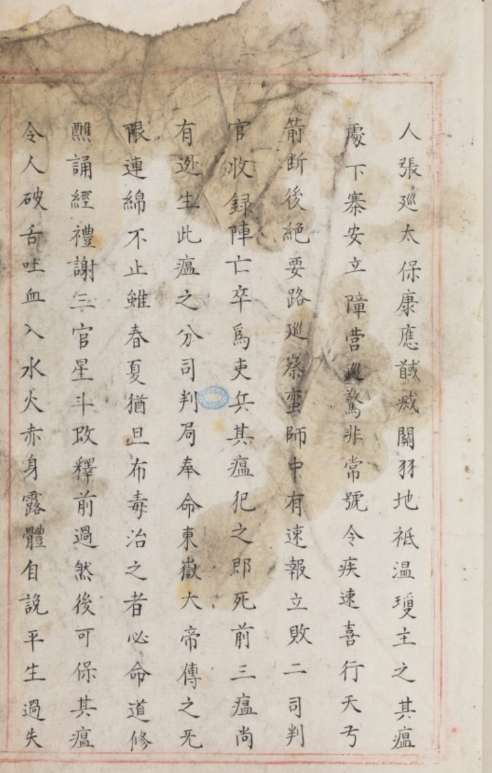 人張廵太保康應馘烕關羽地祗温瓊主之其瘟
䖏下寨安立障營廵驚非常號令疾速喜行天弓
箭断後絶要路廵察蛮師中有速報立敗二司判
官收録陣亡卒爲吏兵其瘟犯之即死前三瘟尚
有逃生此瘟之分司判局奉命東嶽大帝傳之旡
限連綿不止雖春夏猶旦布毒治之者必命道修
醮誦經禮謝三官星斗改釋前過然後可保其瘟
令人破舌吐血入水火赤身露體自説平生過失